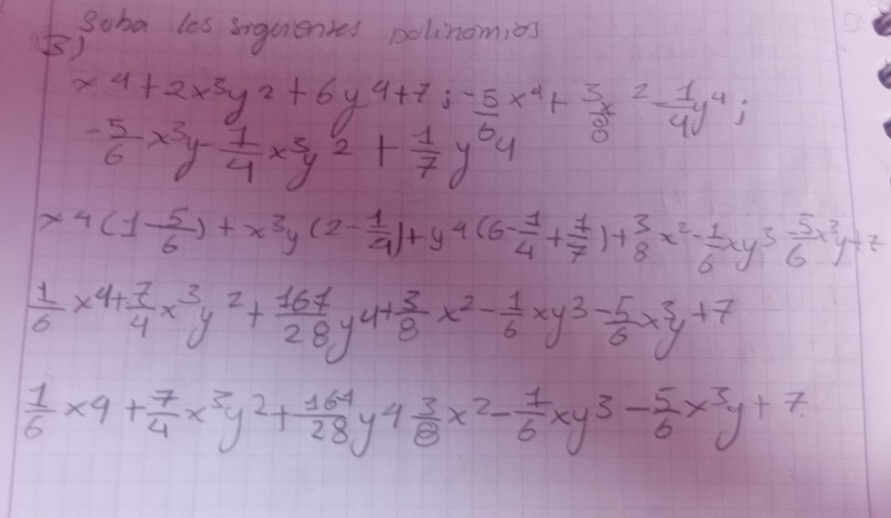 Suba los siguientes polinomios
B)
x4 + 2x³y² + 6y4 + 7 ; -5/6 x⁴ + 3/8 x² - 1/4 y⁴ ;
-5/6 x³y - 1/4 x³y² + 1/7 y4
x4 (1 - 5/6) + x³y (2 - 1/4) + y4 (6 - 1/4 + 1/7) + 3/8 x² - 1/6 xy³ - 5/6 x³y + 7
1/6 x4 + 7/4 x³y² + 167/28 y4 + 3/8 x² - 1/6 xy³ - 5/6 x³y + 7
1/6 x4 + 7/4 x³y² + 161/28 y4 3/8 x² - 1/6 xy³ - 5/6 x³y + 7